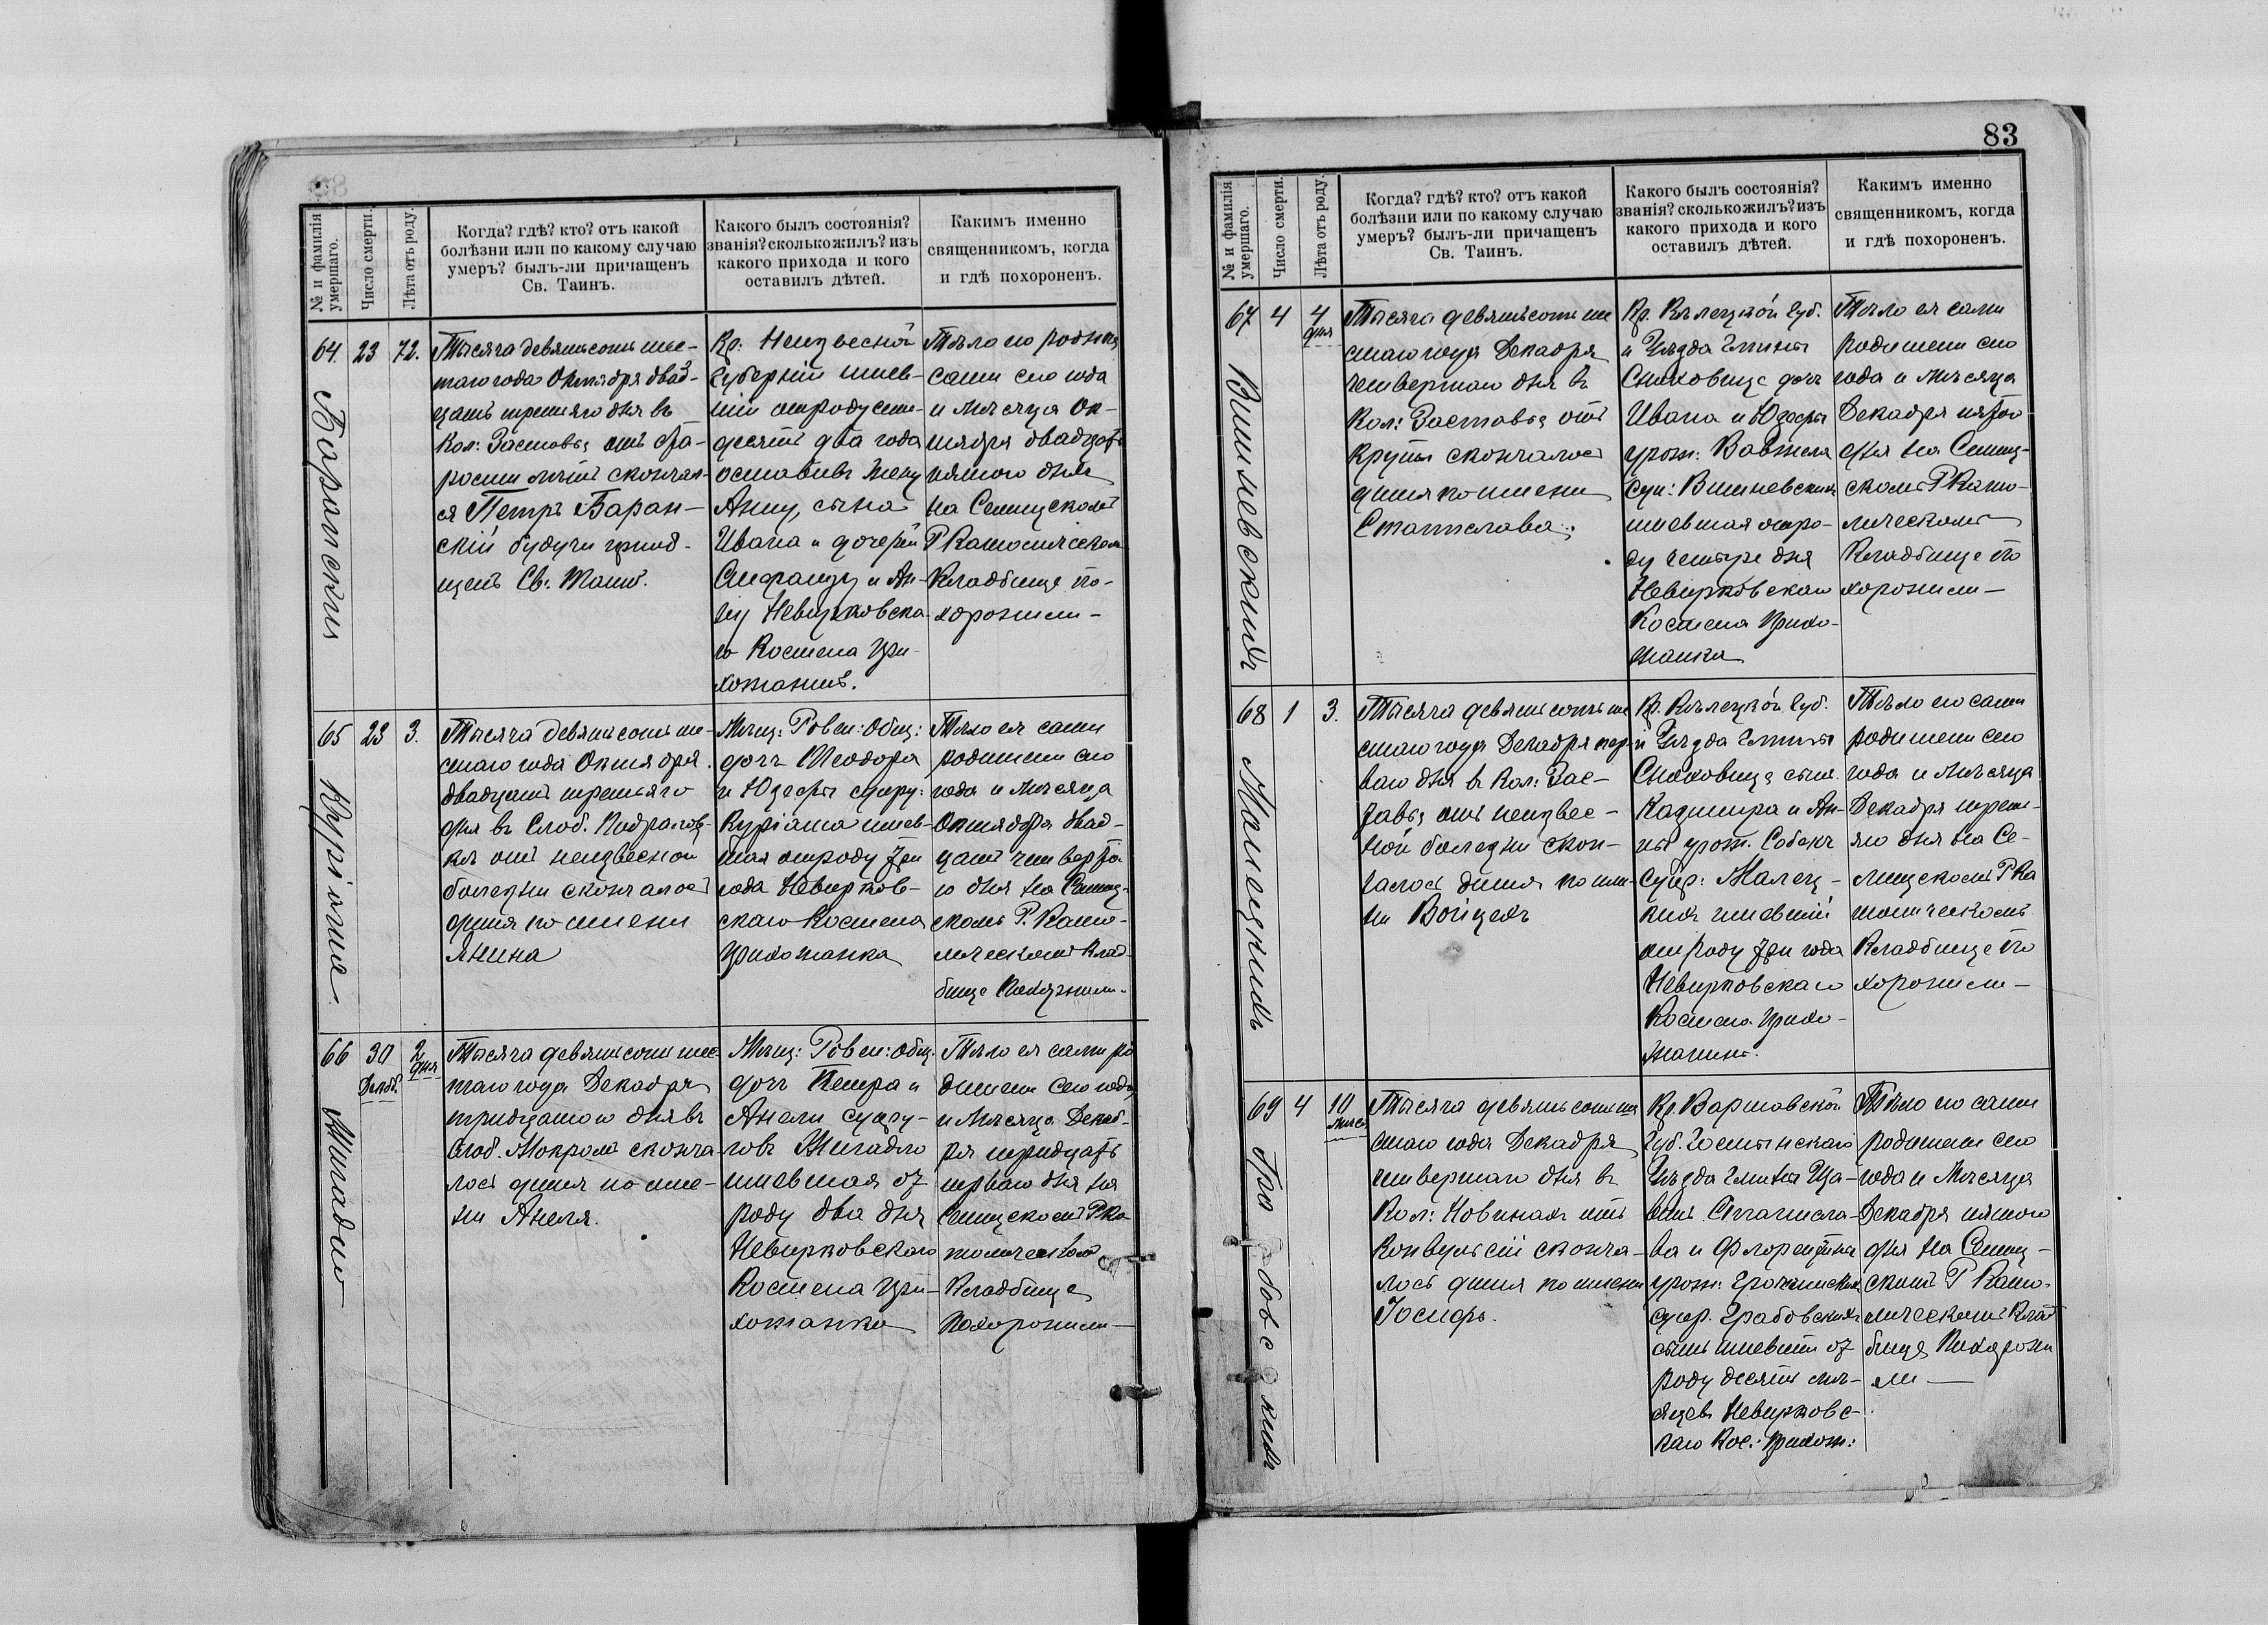 № и фамилія
умершаго.
Число смерти.
Лѣта отъ роду.
Когда? гдѣ? кто? отъ какой
болѣзни или по какому случаю
умеръ? былъ-ли причащенъ
Св. Таинъ.
Какого былъ состоянія?
званія? сколько жилъ? изъ
какого прихода и кого
оставилъ дѣтей.
Какимъ именно
священникомъ, когда
и гдѣ похороненъ.
64
Баранскій
23
72.
Тысяча девятьсотъ шес-
таго года Октября двад-
цать третьяго дня въ
Кол: Заставье отъ ста-
рости лѣтъ скончал-
ся Петръ Баран-
скій будучи приоб-
щенъ Св. Таинъ.
Кр. Неизвесной
Губерніи имев-
шій отроду семь-
десятъ два года
оставивъ жену
Анну, сына
Ивана и дочерей
Стефанију и Ан-
ну Невирковска-
го Костела при-
хожанинъ.
Тѣло его родите
сами сего года
и Мѣсяца Ок-
тября двадцать
пятого дня
на Селищскомъ
Р Католическом
Кладбище по-
хоронили—
65
Куріата.
23
3.
Тысяча девятьсотъ ше-
стаго года Октября
двадцать третьяго
дня въ Слоб. Подталов-
ка отъ неизвесной
болезни скончалось
дитя по имени
Янина
Мѣщ: Ровен: Общ:
дочь Теодора
и Юзефы супру:
Куріата имев-
шая отроду три
года Невирков-
скаго Костела
прихожанка
Тѣло ея сами
родители сего
года и Мѣсяца
Октября двад-
цать четверта
го дня на Селищ-
скомъ Р. Като-
лическомъ Клад-
бище Похоронили.
66
Жигадло
30
Декаб.
2
дня
Тысяча девятьсотъ шес
таго года Декабря
тридцатого дня въ
Слоб. Мокромъ сконча-
лось дитя по име-
ни Анеля.
Мѣщ: Ровен: Общ.
дочь Петра и
Анели супру-
говъ Жигадло
имевшая от
роду два дня
Невирковскаго
Костела при-
хожанка
Тѣло ея сами ро
дители сего года
и Мѣсяца Декаб-
ря тридцать
перваго дня на
Селищскомъ Р Ка
толическом
Кладбище
Похоронили—
83
№ и фамилія
умершаго.
Число смерти.
Лѣта отъ роду.
Когда? гдѣ? кто? отъ какой
болѣзни или по какому случаю
умеръ? былъ-ли причащенъ
Св. Таинъ.
Какого былъ состоянія?
званія? сколько жилъ? изъ
какого прихода и кого
оставилъ дѣтей.
Какимъ именно
священникомъ, когда
и гдѣ похороненъ.
67
Вишневскихъ
4
4
дня
Тысяча девятьсотъ ше
стаго года Декабря
четвертаго дня въ
Кол: Заставье отъ
крупы скончалось
дитя по имени
Станислава.
Кр. Кѣлецкой Губ.
и Уѣзда Гмины
Снаховице дочь
Ивана и Юзефы
урож: Вавжела
суп: Вишневскихъ
имевшая отро-
ду четыре дня
Невирковскаго
Костела Прихо-
жанка
Тѣло ея сами
родители сего
года и Мѣсяца
Декабря пятого
дня на Селищ-
скомъ Р Като-
лическомъ
Кладбище по
хоронили—
68
Малецкихъ
1
3.
Тысяча девятьсотъ ше
стаго года Декабря пер-
ваго дня в Кол: Зас-
тавье отъ неизвес-
ной болезни скон-
чалось дитя по име-
ни Войцехъ
Кр. Кѣлецкой Губ.
и Уѣзда Гмины
Снаховице сынъ
Казимира и Ан-
ны урож. Собекъ
супр: Малец-
кихъ имевшій
отроду три года
Невирковскаго
Костела Прихо-
жанинъ.
Тѣло его сами
родители сего
года и Мѣсяца
Декабря треть-
яго дня на Се-
лищскомъ Р Ка
толическомъ
Кладбище по
хоронили—
69
Грабовскихъ
4
10
мѣс.
Тысяча девятьсотъ ше
стаго года Декабря
четвертаго дня въ
Кол: Новинахъ отъ
Конвульсіи сконча-
лось дитя по имени
Іосифъ.
Кр. Варшавской
Губ. Гостынскаго
Уѣзда Гмины Ща-
винъ Станисла-
ва и Флорентины
урож:
супр. Грабовскихъ
сынъ имевшій от
роду десять мѣ-
сяцевъ Невирковс-
каго Кос.: прихож:
Тѣло его сами
родители сего
года и Мѣсяца
Декабря пятого
дня на Селищ-
скомъ Р Като-
лическомъ Клад
бище Похорони
ли—